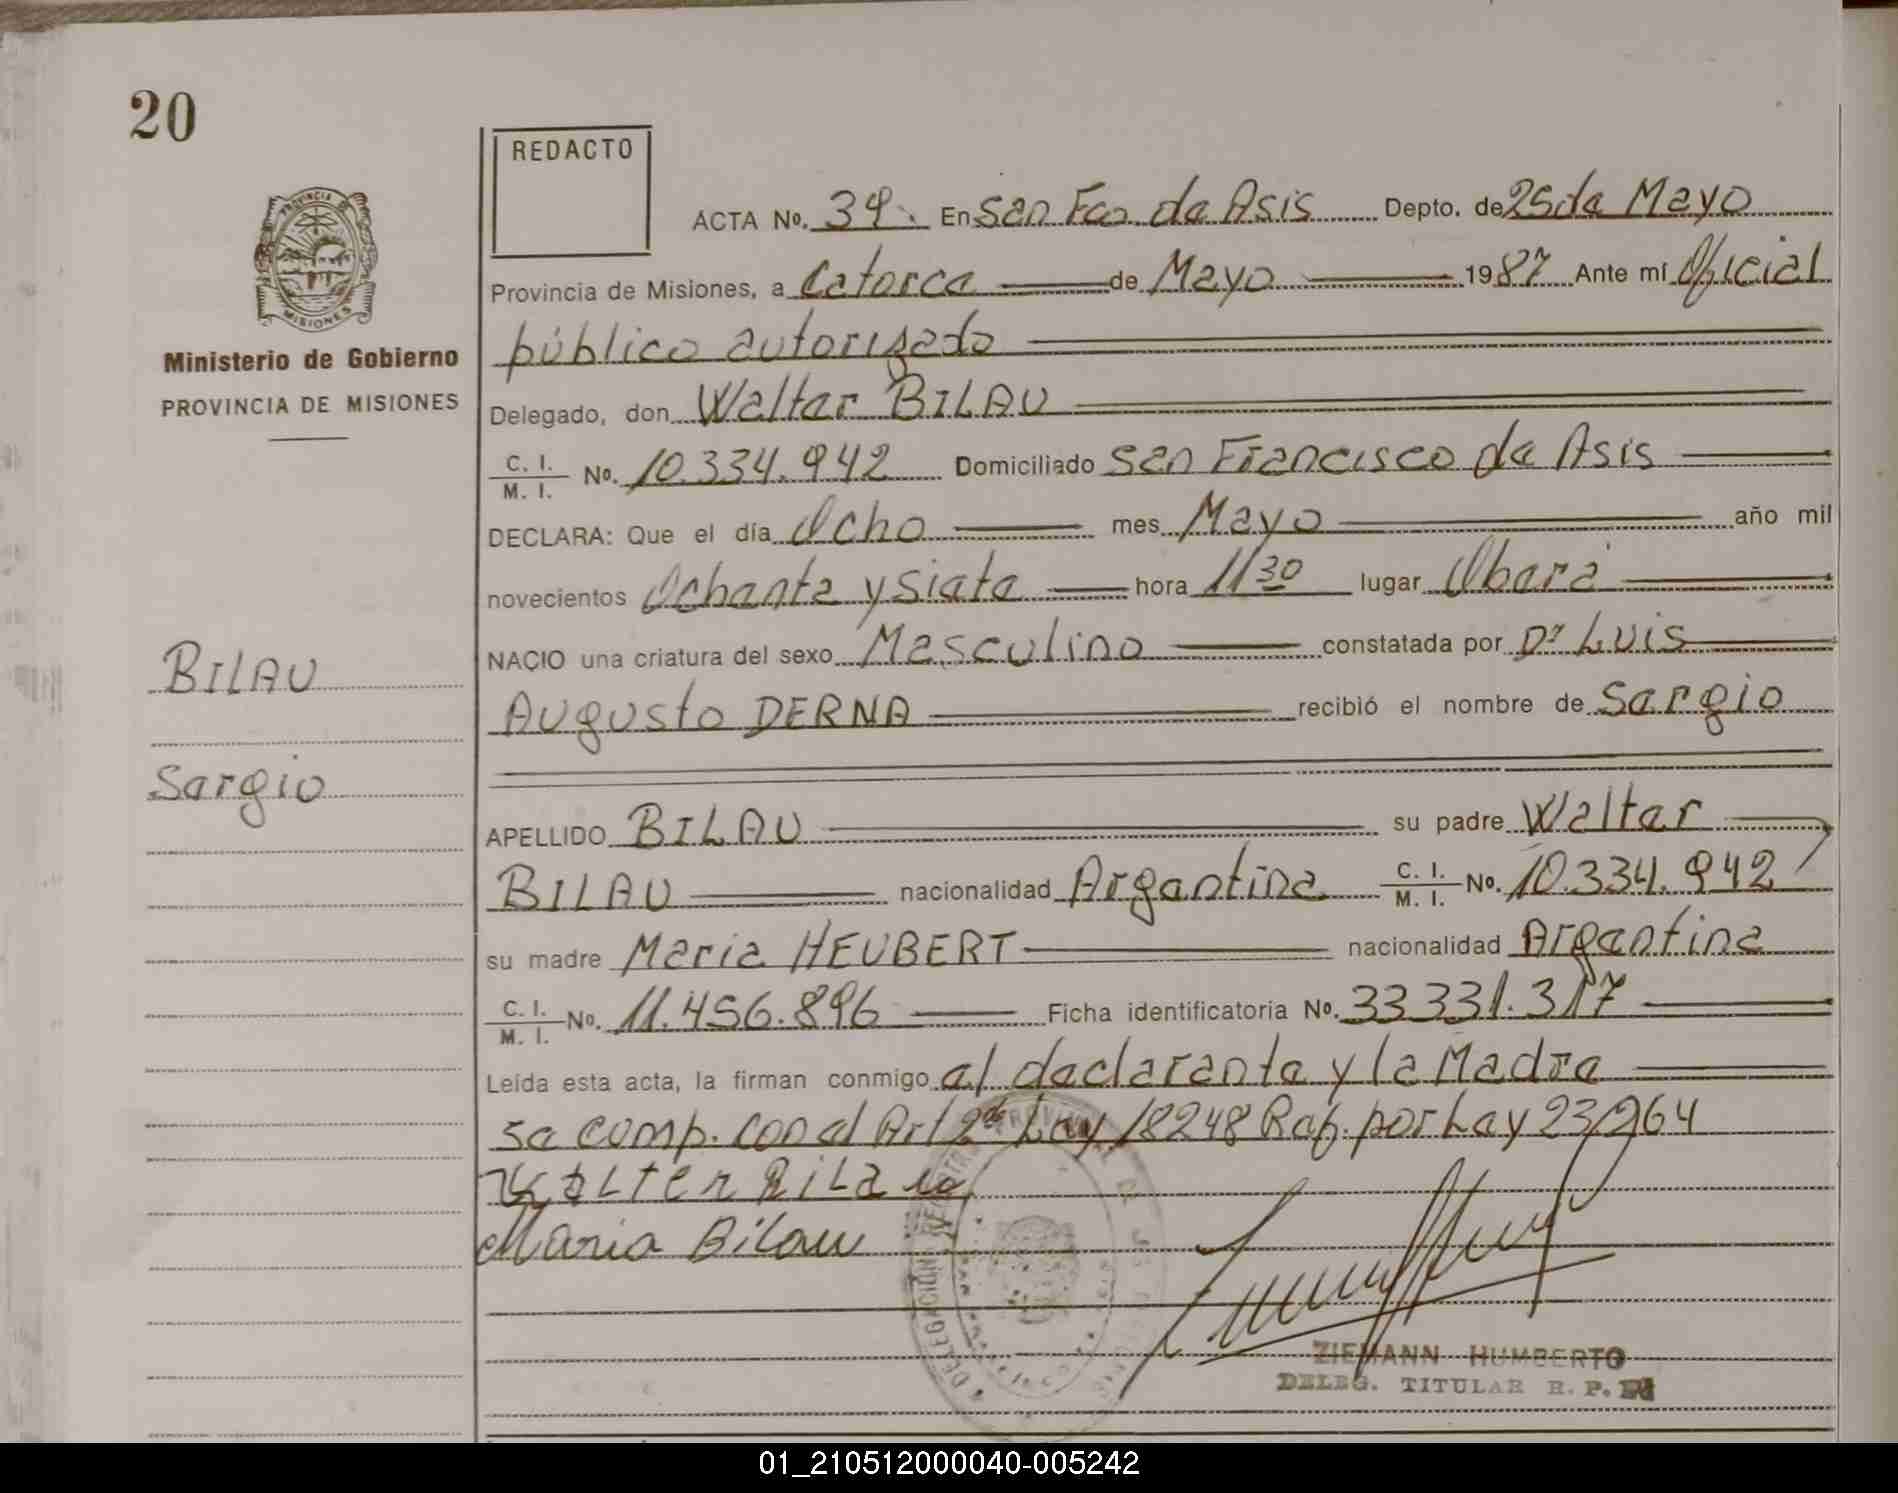 20
REDACTO
ACTA Nº. 39. En San Fco de Asis Depto. de 25 de Mayo
Provincia de Misiones, a Catorce de Mayo 1987 Ante mí Oficial
público autorizado
PROVINCIA DE
MISIONES
Ministerio de Gobierno
PROVINCIA DE MISIONES
Delegado, don Walter BILAU
C. I.
M. I. Nº. 10.334.942 Domiciliado San Francisco de Asis
DECLARA: Que el día Ocho mes Mayo año mil
novecientos Ochenta y Siete hora 11 30 lugar Oberá
NACIO una criatura del sexo Masculino constatada por Dr Luis
Augusto DERNA recibió el nombre de Sergio
BILAU
Sergio
APELLIDO BILAU su padre Walter
BILAU nacionalidad Argentina C. I.
M. I. Nº. 10.334.942
su madre Maria HEUBERT nacionalidad Argentina
C. I.
M. I. Nº. 11.456.896 Ficha identificatoria Nº. 33 331.317
Leída esta acta, la firman conmigo el declarante y la Madre
se comp. con el Art 2do Ley 18248 Ref. por Ley 23264
Walter Bilau
Maria Bilau
DELEGACION
ZIEMANN HUMBERTO
DELEG. TITULAR R. P.
01_210512000040-005242